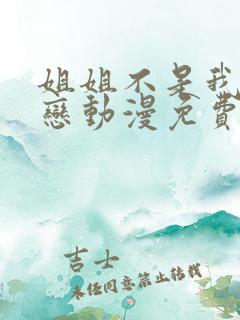 姐姐不是我
戀動漫免費
吉士
未经同意禁止转载